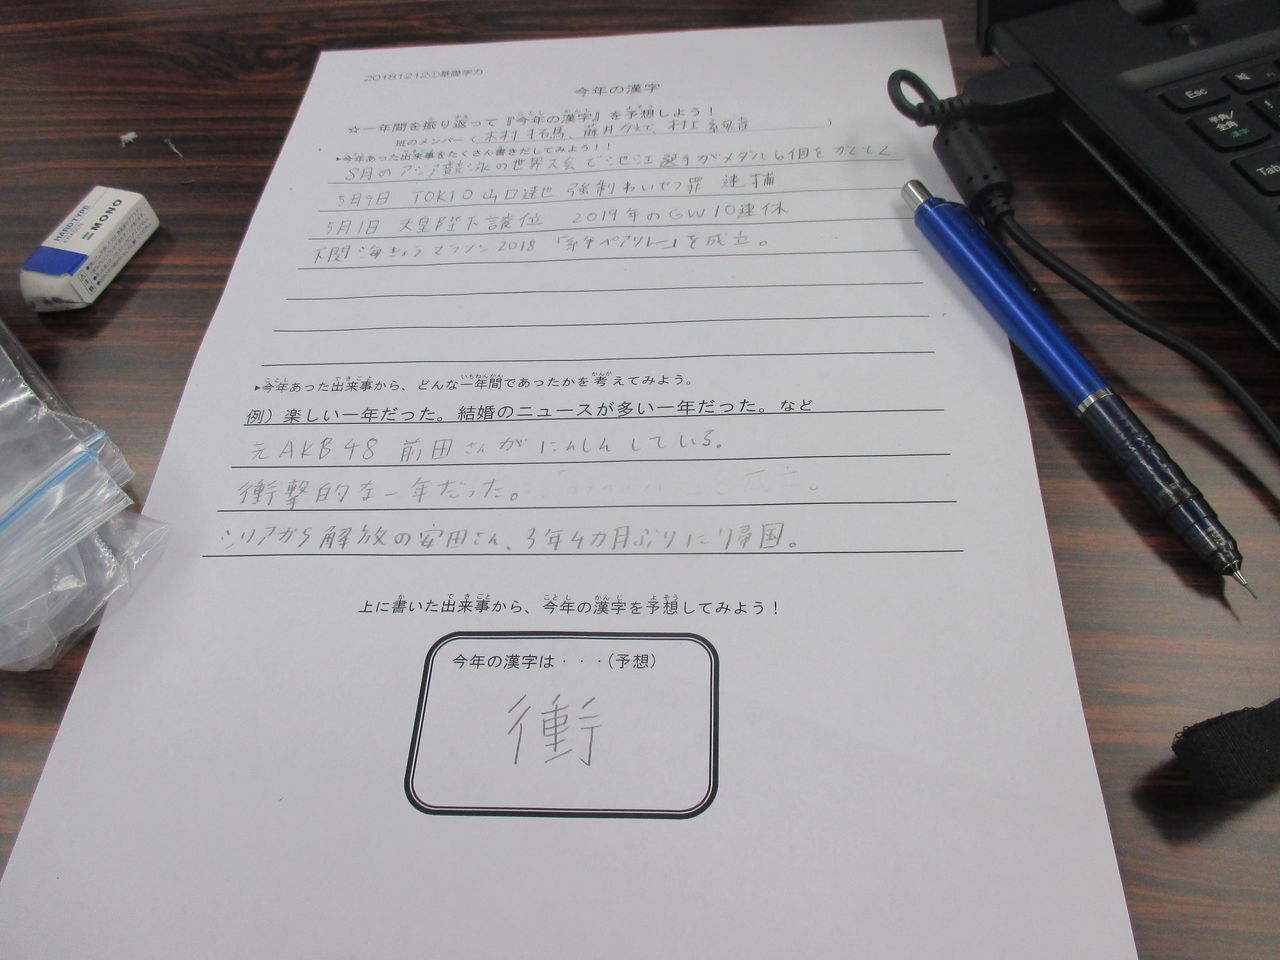 20181212①基礎学力
今年の漢字
☆一年間を振り返って『今年の漢字』を予想しよう！
班のメンバー（木村 拓馬、藤井
▸今年あった出来事をたくさん書きだしてみよう！！
8月のアジア競泳の世界大会で池江選手がメダル6個をかくとく
5月9日 TOKIO山口達也 強制わいせつ罪 逮捕
5月1日 天皇陛下譲位 2019年のGW10連休
下関海きょうマラソン2018 を成立。
▸今年あった出来事から、どんな一年間であったかを考えてみよう。
例）楽しい一年だった。結婚のニュースが多い一年だった。など
元AKB48 前田さんがにんしんしている。
衝撃的な一年だった。
シリアから解放の安田さん、3年4カ月ぶりに帰国。
上に書いた出来事から、今年の漢字を予想してみよう！
今年の漢字は・・・（予想）
衝
HARDTYPE
ERASER
MONO
Esc
半角/
全角
漢字
Tab